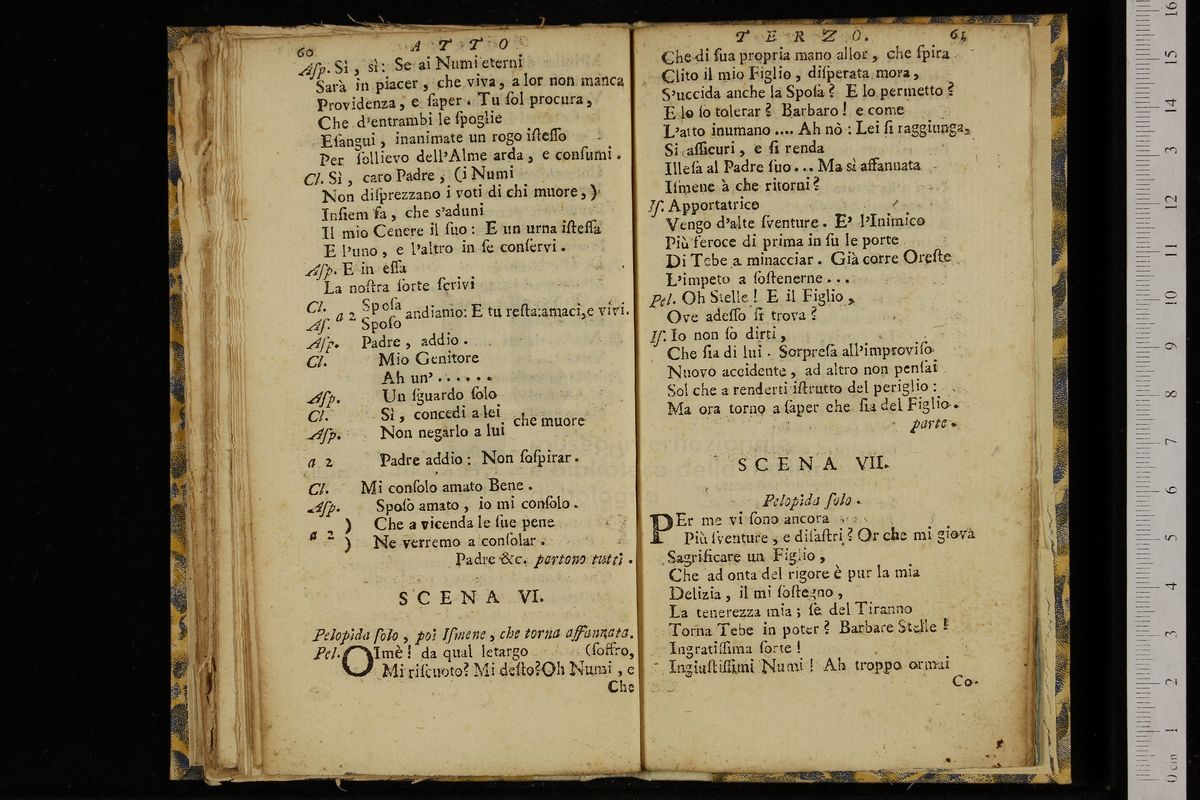 60 ATTO
Asp. Sì, sì: Se ai Numi eterni
Sarà in piacer, che viva, a lor non manca
Providenza, e ſaper. Tu ſol procura,
Che d'entrambi le ſpoglie
Eſangui, inanimate un rogo iſteſſo
Per ſollievo dell'Alme arda, e conſumi.
Cl. Sì, caro Padre, (i Numi
Non diſprezzano i voti di chi muore,)
Inſiem fa, che s'aduni
Il mio Cenere il ſuo: E un urna iſteſſa
E l'uno, e l'altro in ſe conſervi.
Aſp. E in eſſa
La noſtra ſorte ſcrivi
Cl. a 2 Spoſa andiamo: E tu reſta: amaci, e vivi.
Aſ. Spoſo
Aſp. Padre, addio.
Cl. Mio Genitore
Ah un' . . . . . .
Aſp. Un ſguardo ſolo
Cl. Sì, concedi a lei che muore
Aſp. Non negarlo a lui
a 2 Padre addio: Non ſoſpirar.
Cl. Mi conſolo amato Bene.
Aſp. Spoſo amato, io mi conſolo.
a 2 ) Che a vicenda le ſue pene
) Ne verremo a conſolar.
Padre &c. partono tutti.
SCENA VI.
Pelopida ſolo, poi Iſmene, che torna affannata.
Pel. OImè! da qual letargo (ſoffro,
Mi riſcuoto? Mi deſto? Oh Numi, e
Che
TERZO. 61
Che di ſua propria mano allor, che ſpira
Clito il mio Figlio, diſperata mora,
S'uccida anche la Spoſa? E lo permetto?
E lo ſo tolerar? Barbaro! e come
L'atto inumano .... Ah nò: Lei ſi raggiunga,
Si aſſicuri, e ſi renda
Illeſa al Padre ſuo... Ma sì affannata
Iſmene à che ritorni?
Iſ. Apportatrice
Vengo d'alte ſventure. E' l'Inimico
Più feroce di prima in ſu le porte
Di Tebe a minacciar. Già corre Oreſte
L'impeto a ſoſtenerne...
Pel. Oh Stelle! E il Figlio,
Ove adeſſo ſi trova?
Iſ. Io non ſò dirti,
Che ſia di lui. Sorpreſa all'improviſo
Nuovo accidente, ad altro non penſai
Sol che a renderti iſtrutto del periglio:
Ma ora torno a ſaper che ſia del Figlio.
parte.
SCENA VII.
Pelopìda ſolo.
PEr me vi ſono ancora
Più ſventure, e diſaſtri? Or che mi giova
Sagrificare un Figlio,
Che ad onta del rigore è pur la mia
Delizia, il mi ſoſtegno,
La tenerezza mia; ſe del Tiranno
Torna Tebe in poter? Barbare Stelle!
Ingratiſſima ſorte!
Ingiuſtiſſimi Numi! Ah troppo ormai
Co-
0 cm 1 2 3 4 5 6 7 8 9 10 11 12 13 14 15 16